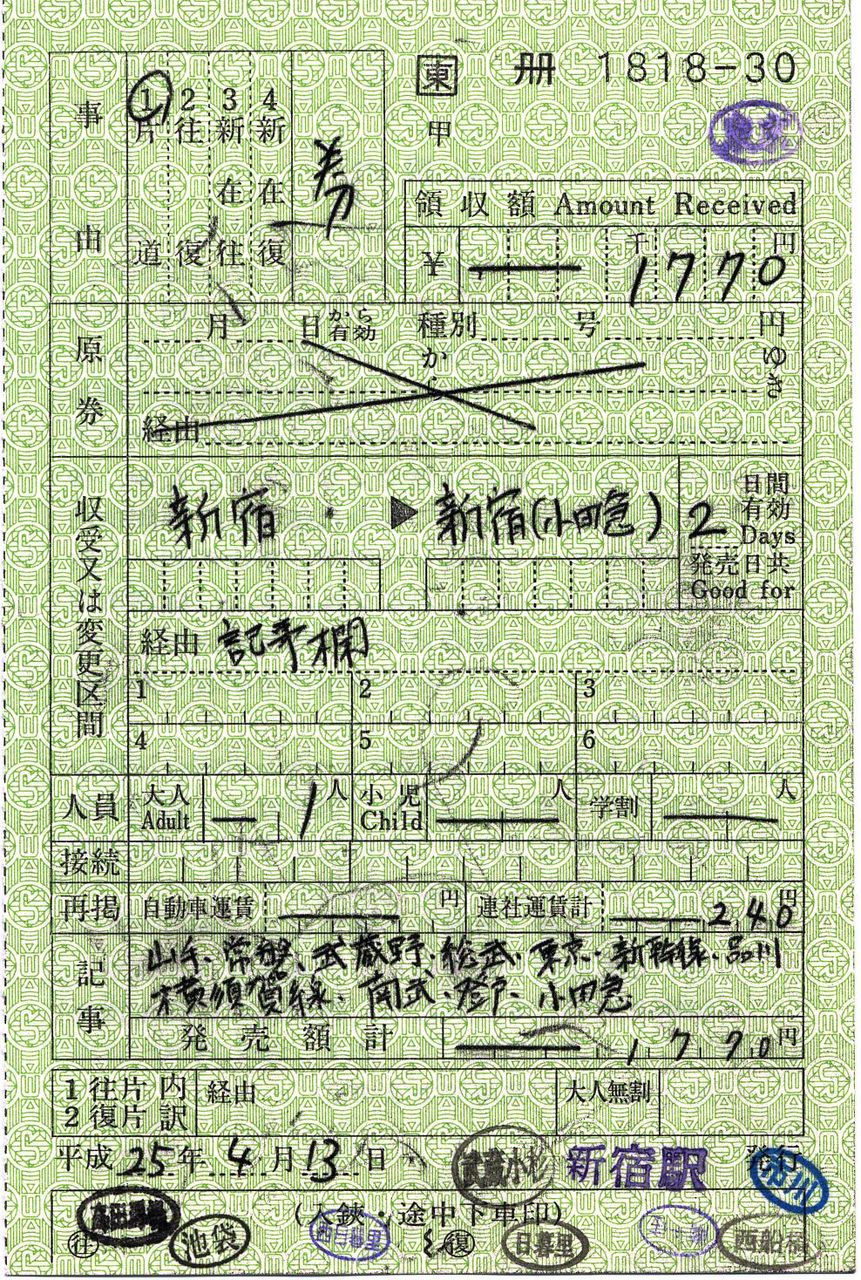 東 冊 1818-30
甲
事由
1 2 3 4
片道 往復 新在往 新在復
券
領収額 Amount Received
¥ 千 円
1770
原券
月 日から有効 種別 号 円
から ゆき
経由
収受又は変更区間
新宿 ▶ 新宿(小田急)
2 日間有効 Days
発売日共 Good for
経由 記事欄
1 2 3
4 5 6
人員 大人 Adult 1人 小児 Child 人 学割 人
接続
再掲 自動車運賃 円 連社運賃計 240円
記事 山手、常磐、武蔵野、総武、東京、新幹線、品川
横須賀線、南武、登戸、小田急
発売額計 1770円
1 往片 内訳 経由 大人無割
2 復片
平成25年4月13日 武蔵小杉 新宿駅 発行
(入鋏・途中下車印)
往 高田馬場 池袋 西日暮里 復 日暮里 西船橋